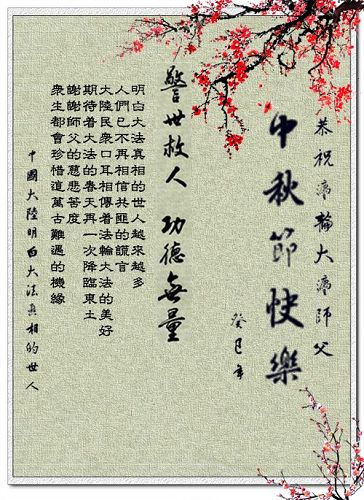 恭祝法輪大法師父
中秋節快樂
癸巳年
警世救人 功德無量
明白大法真相的世人越來越多
人們已不再相信共匪的謊言
大陸民衆口耳相傳着法輪大法的美好
期待着大法的春天再一次降臨東土
謝謝師父的慈悲苦度
衆生都會珍惜這萬古難遇的機緣
中國大陸明白大法真相的世人